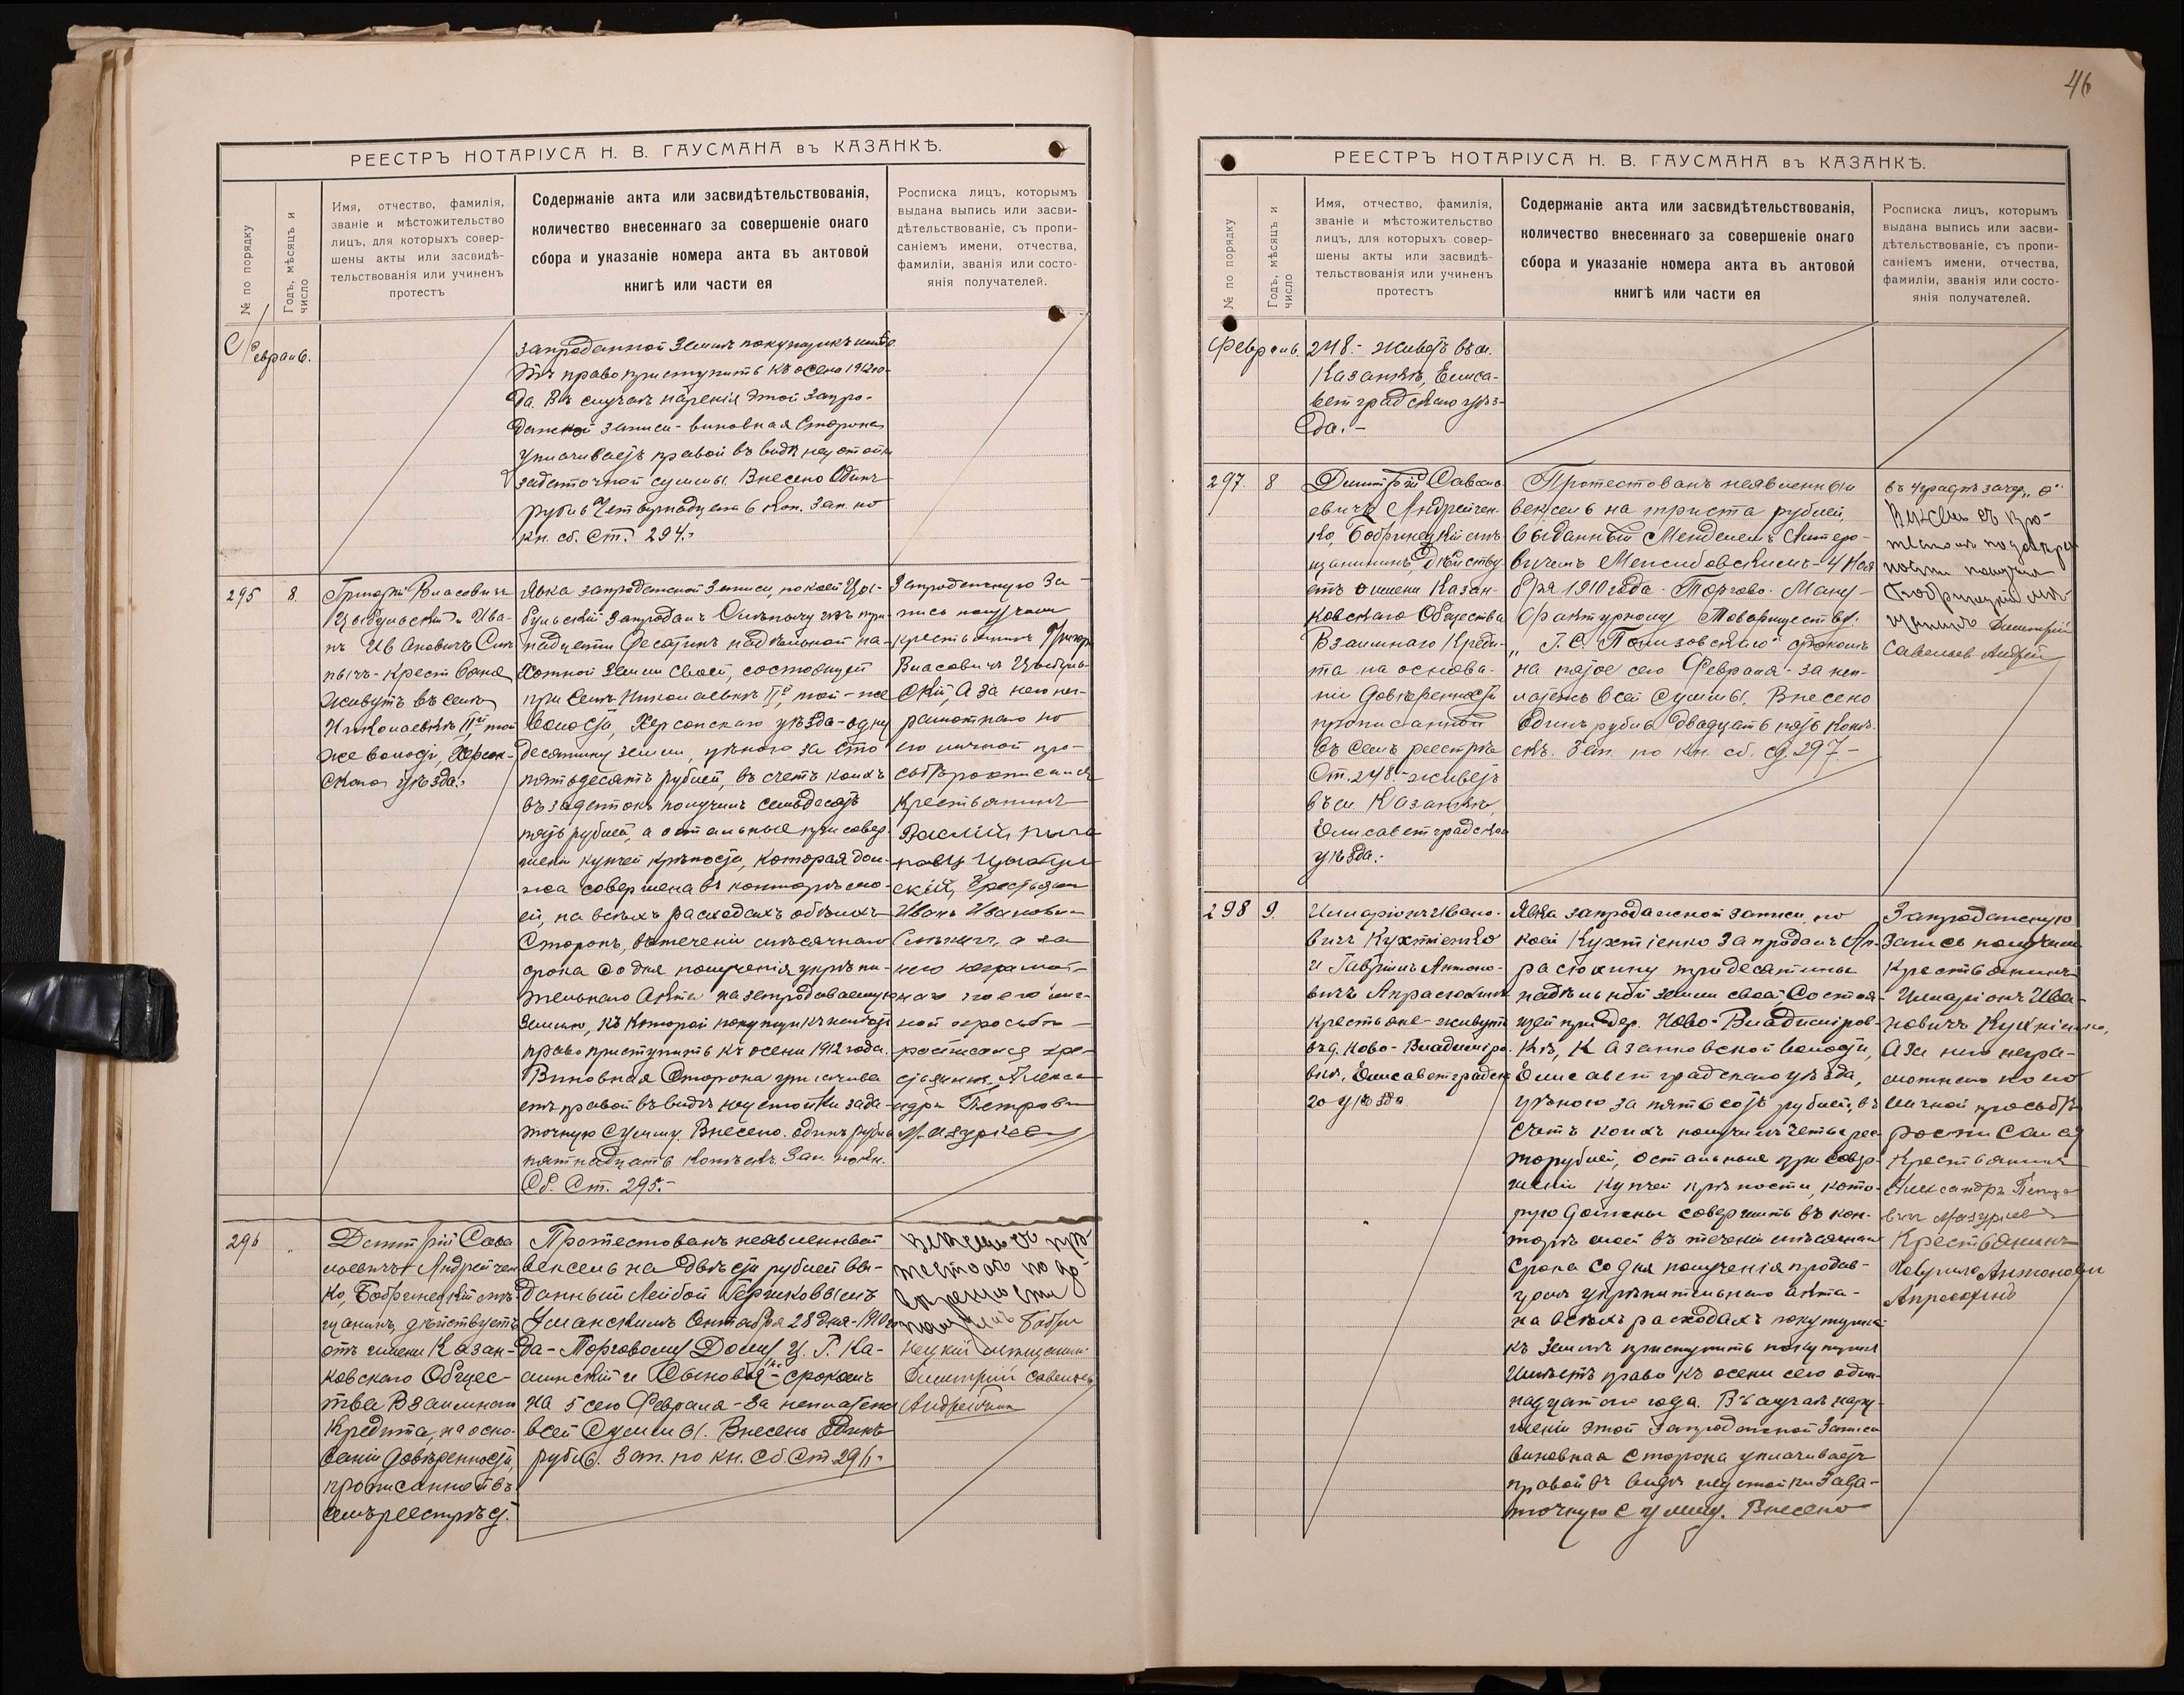 46
РЕЕСТРЪ НОТАРІУСА Н. В. ГАУСМАНА въ КАЗАНКѢ.
№ по порядку
Годъ, мѣсяцъ и
число
Имя, отчество, фамилія,
званіе и мѣстожительство
лицъ, для которыхъ совер-
шены акты или засвидѣ-
тельствованія или учиненъ
протестъ
Содержаніе акта или засвидѣтельствованія,
количество внесеннаго за совершеніе онаго
сбора и указаніе номера акта въ актовой
книгѣ или части ея
Росписка лицъ, которымъ
выдана выпись или засви-
дѣтельствованіе, съ пропи-
саніемъ имени, отчества,
фамиліи, званія или состо-
янія получателей.
Феврал.
запроданной землѣ покупщикъ имѣ
право приступить къ осени 1912 го-
да. Въ случаѣ нарушенія этой запро-
данной записи - виновная сторона
уплачиваетъ правой въ видѣ неустойки
задаточной суммы. Внесено одинъ
рубль Четырнадцать коп. Зап. по
кн. сб. Ст. 294.-
295
8.
Григорій Власовичъ
Цыбульскій и Ива-
нъ Ивановичъ
крестьяне
живутъ въ селѣ
Николаевкѣ IIй, той
же волости, Херсон-
скаго уѣзда.-
Явка запроданной записи, по коей Цы-
бульскій запродалъ
десятинъ надѣльной па-
хотной земли своей, состоящей
при селѣ Николаевкѣ IIй, той-же
волости, Херсонскаго уѣзда - одну
десятину земли, цѣною за сто
пятьдесятъ рублей, въ счетъ коихъ
въ задатокъ получилъ семьдесятъ
пять рублей, а остальные при совер-
шеніи купчей крѣпости, которая дол-
жна совершена въ конторѣ мо-
ей, на всѣхъ расходахъ обѣихъ
сторонъ, въ теченіи мѣсячнаго
срока со дня полученія укрѣпи-
тельнаго Акта на запродаваемую
землю, къ которой покупщикъ имѣетъ
право приступить къ осени 1912 года.
Виновная Сторона уплачива
етъ правой въ видѣ неустойки зада-
точную Сумму. Внесено одинъ рубль
пятнадцать копѣекъ. Зап. по кн.
Сб. Ст. 295.-
Запроданную за-
пись получили
крестьянинъ Григорій
Власовичъ Цыбуль-
скій, а за него не-
грамотнаго по
его личной про-
сьбѣ росписался
крестьянинъ
Василій
скій, крестьянин
Иванъ Иванович
а за
него неграмот-
наго по его лич-
ной просьбѣ -
росписался кре-
стьянинъ Алекса
ндръ Петрович
Мазуркевичъ
296
"
Дмитрій Саве
льевичъ Андрейчен
ко, Бобринецкій мѣ-
щанинъ, дѣйствуетъ
отъ имени Казан-
ковскаго Общес-
тва Взаимнаго
Кредита, на осно-
ваніи довѣренности,
прописанной въ
семъ реестрѣ ст.
Протестованъ неявленный
вексель на двѣсти рублей вы-
данный Лейбой Гершковымъ
Уманскимъ Октября 28 дня 1910 го
да - Торговому Дому Ц. Г. Ка-
минскій и Сыновья - срокомъ
на 5 сего Февраля - за неплатежъ
всей Суммы. Внесено одинъ
рубль. Зап. по кн. Сб. Ст 296.-
Вексель съ про
тестомъ по до-
вѣренности
получилъ Бобри
нецкій мѣщанин
Дмитрій Савельев
Андрейченк
РЕЕСТРЪ НОТАРІУСА Н. В. ГАУСМАНА въ КАЗАНКѢ.
№ по порядку
Годъ, мѣсяцъ и
число
Имя, отчество, фамилія,
званіе и мѣстожительство
лицъ, для которыхъ совер-
шены акты или засвидѣ-
тельствованія или учиненъ
протестъ
Содержаніе акта или засвидѣтельствованія,
количество внесеннаго за совершеніе онаго
сбора и указаніе номера акта въ актовой
книгѣ или части ея
Росписка лицъ, которымъ
выдана выпись или засви-
дѣтельствованіе, съ пропи-
саніемъ имени, отчества,
фамиліи, званія или состо-
янія получателей.
Феврал.
248.- живетъ въ м.
Казанкѣ, Елиса-
ветградскаго уѣз-
да.-
297.
8
Дмитрій Савель-
евичъ Андрейчен-
ко, Бобринецкій мѣ-
щанинъ, Дѣйству-
етъ отъ имени Казан-
ковскаго Общества
Взаимнаго Креди-
та на основа-
ніи довѣренности
прописанной
въ семъ реестрѣ
Ст. 248.- живетъ
въ м. Казанкѣ,
Елисаветградскаго
уѣзда.-
Протестованъ неявленный
вексель на триста рублей,
выданный Менделемъ
вичемъ - 4 Ноя
бря 1910 года - Торгово-Ману-
фактурному Товариществу
срокомъ
на пятое сего Февраля - за неп-
латежъ всей суммы. Внесено
Одинъ рубль двадцать пять копѣ-
екъ. Зап. по кн. сб. ст. 297.-
Вексель съ про-
тестомъ по довѣре
ности получилъ
Бобринецкій мѣ
щанинъ Дмитрій
Савельев Андрей
298
9.
Илларіонъ Ивано-
вичъ Кухтіенко
и Гавріилъ Антоно-
вичъ Апрасюхинъ
крестьяне - живутъ
въ д. Ново-Владиміро-
вкѣ, Елисаветградска
го уѣзда
Явка запроданной записи, по
коей Кухтіенко запродалъ Ап-
расюхину три десятины
надѣльной земли своей, Состоя-
щей при дер. Ново-Владиміров-
кѣ, Казанковской волости,
Елисаветградскаго уѣзда,
цѣною за пятьсотъ рублей, въ
счетъ коихъ получилъ четырес-
то рублей, остальные при совер-
шеніи купчей крѣпости, кото-
рую должны совершить въ кон-
торѣ моей въ теченіи мѣсячнаго
срока со дня полученія продав-
цомъ укрѣпительнаго акта -
на всѣхъ расходахъ покупщика
къ землѣ приступить покупщикъ
имѣетъ право къ осени сего один-
надцатаго года. Въ случаѣ нару-
шенія этой запроданной записи
виновная сторона уплачиваетъ
правой въ видѣ неустойки зада-
точную сумму. Внесено
Запроданную
запись получили
крестьянинъ
Илларіонъ Ива-
новичъ Кухтіенко,
а за него негра-
мотнаго по его
личной просьбѣ
росписался
крестьянинъ
Александръ Петро
вич Мазуркев
крестьянинъ
Гаврило Антонович
Апросюхинъ